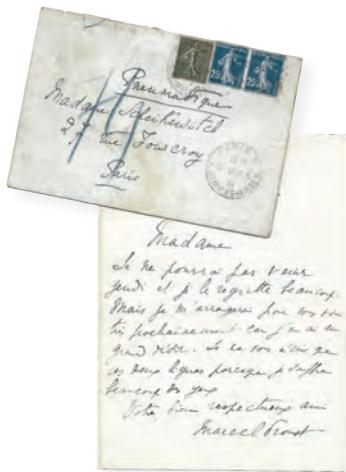 Pneumatique
Madame Scheikévitch
27 rue Fourcroy
Paris
25 25
PARIS
Madame
Je ne pourrai pas venir
jeudi et je le regrette beaucoup.
Mais je m'arrangerai pour vous voir
très prochainement car j'en ai un
grand désir. Je ne vous écris que
ces deux lignes parce que je souffre
beaucoup des yeux
Votre bien respectueux ami
Marcel Proust